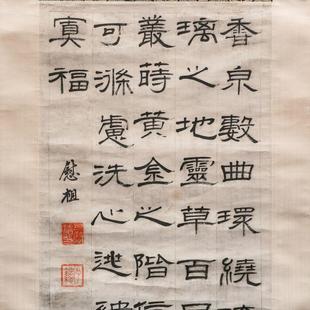 香泉數曲環繞
璃之地靈草百
叢蒔黃金之階
可滌慮洗心逃
冥福
慰祖